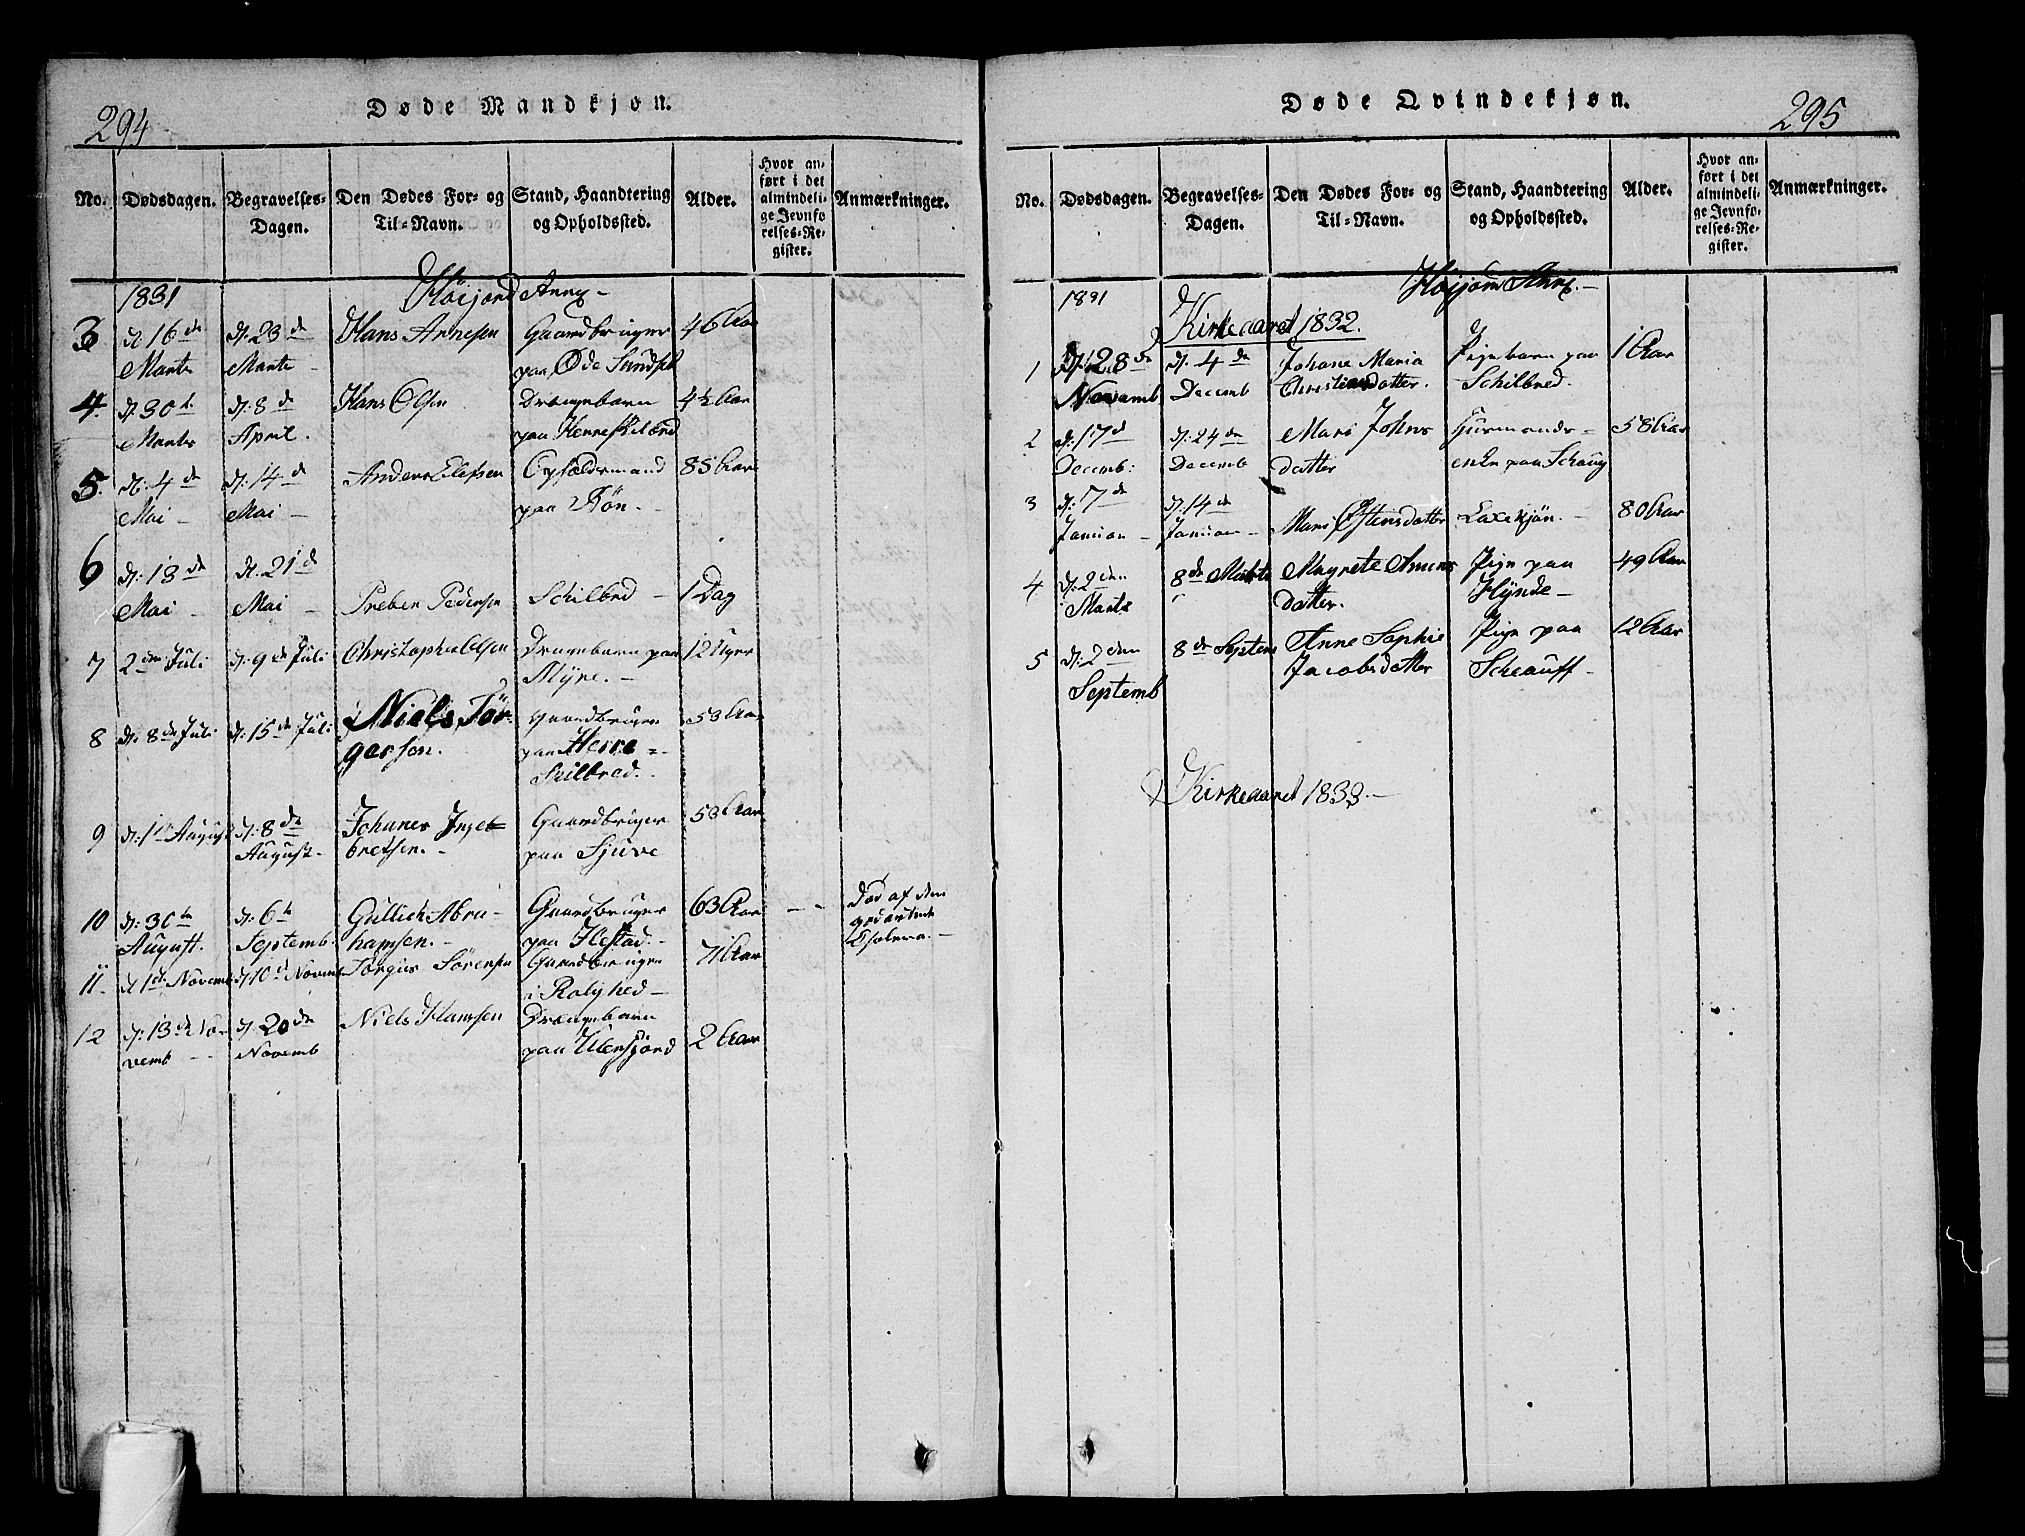 294
Døde Mandkjøn.
No. Dødsdagen. Begravelses-Dagen. Den Dødes For- og Til-Navn. Stand, Haandtering og Opholdssted. Alder. Hvor anført i det almindelige Jevnførelses-Register. Anmærkninger.
1831 Höijord Annx –
3 d. 16de d. 23de Hans Arnesen Gaardbruger 46 Aar
Martz Martz – paa Øde Sundset
4. d. 30te d. 8de Hans Olsen Drengebarn 4½ Aar
Martz April. paa Herreskilbred
5. d. 4de d. 14de Anders Elefsen Opholdsmand 85 Aar
Mai – Mai – paa Rön. –
6 d. 18de d. 21de
Mai Mai – Preben Pedersen Schilbred – 1 Dag
7 2den Juli d. 9de Juli Christopher Olsen Drengebarn paa 12 Uger
Myre. –
8 d. 8de Juli d. 15de Juli Niels Jör- Gaardbruger 53 Aar
gersen. paa Herre =
Skilbred.
9 d. 1te August d. 8de Johanes Ingeb- Gaardbruger 53 Aar
August. bretsen. – paa Sjuve
10 d. 30te d. 6te Gullich Abra- Gaardbruger 63 Aar – – Död af den
August. Septemb. hamsen. – paa Hestad. – geartede
Cholera. –
11. d. 1de Novemb d. 10de Novemb Jörgus Sörensen Gaardbruger 71 Aar
i Rolighed –
12 d. 13de No- d. 20de Niels Hansen Drengebarn
vemb – Novemb paa 2 Aar
Døde Qvindekjøn.
295
No. Dødsdagen. Begravelses-Dagen. Den Dødes For- og Til-Navn. Stand, Haandtering og Opholdssted. Alder. Hvor anført i det almindelige Jevnførelses-Register. Anmærkninger.
1831 Höijord Annx. –
Kirkeaaret 1832.
1 d. 28de d. 4de Johane Maria Pigebarn paa 1 Aar
Novemb. Decemb Christensdatter. – Schilbred.
2 d. 17de d. 24de Mari Johns Huusmands- 58 Aar
Decemb: Decemb datter enke paa Schaug
3 d. 7de d. 14de
Januar – Januar – Mari Østensdatter – 80 Aar
4 d. 2den 8de Martz Magrete Pige paa 49 Aar
Martz datter. Hynde –
5 d. 2den 8de Septem Anne Sophie Pige paa 12 Aar
Septemb Jacobsdatter Scheauff –
Kirkeaaret 1833. –